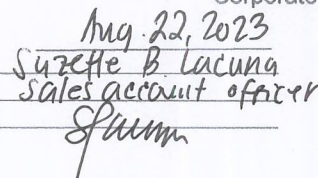 Corporate
Aug. 22, 2023
Suzette B. Lacuna
Sales account officer